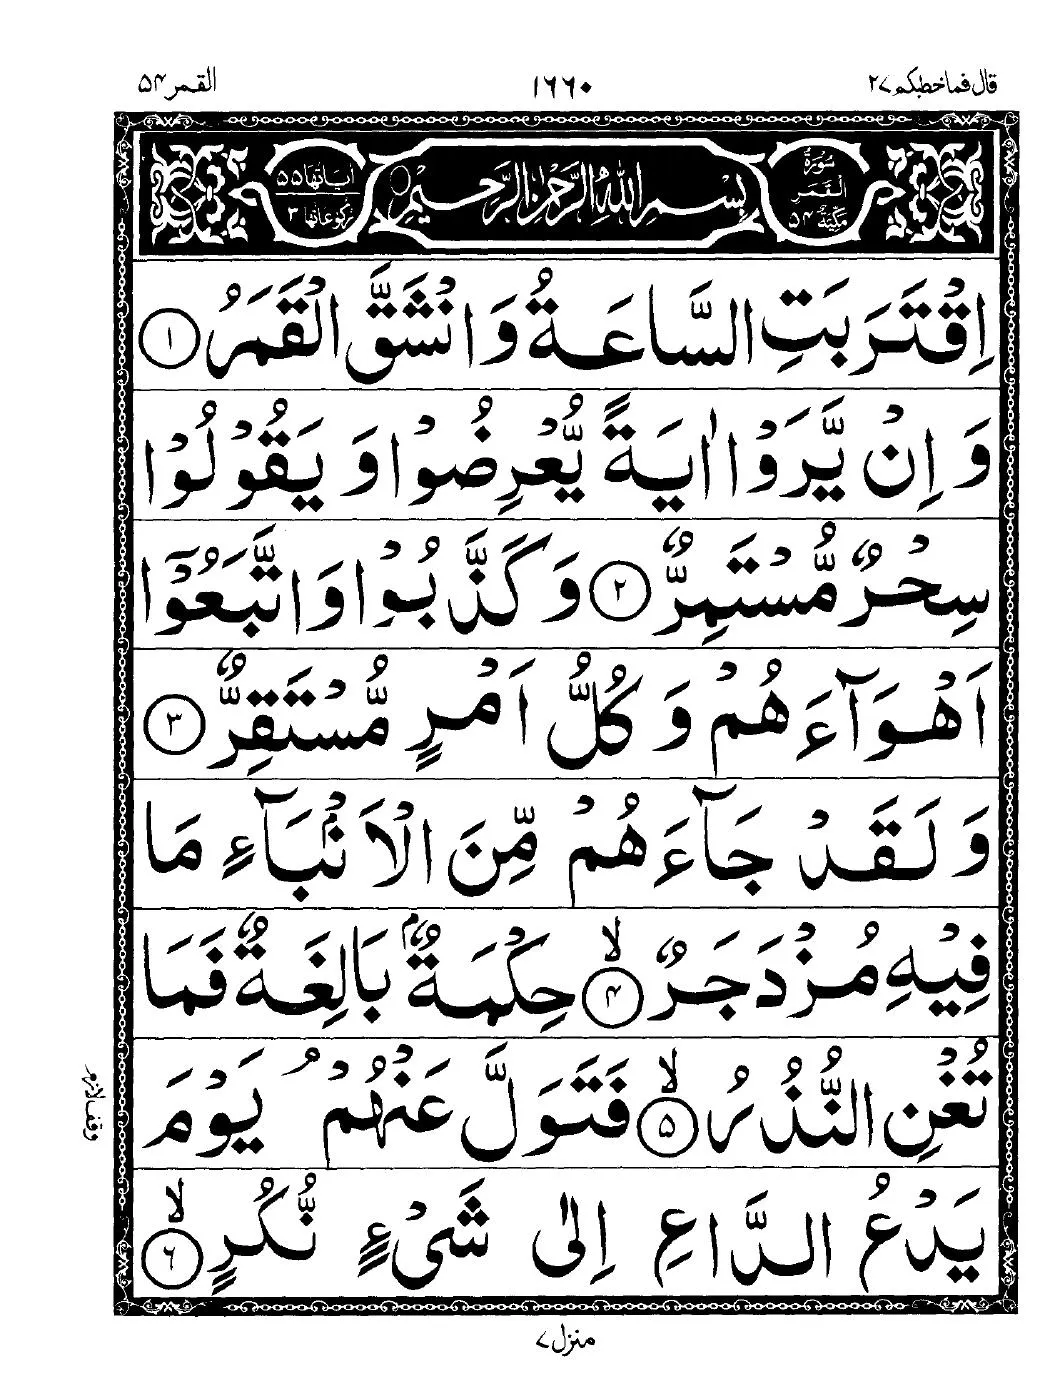 قال فما خطبكم ٢٧
١٦٦٠
القمر ٥٤
سُوْرَةُ الْقَمَرِ مَكِّيَّةٌ ٥٤
بِسْمِ اللّٰهِ الرَّحْمٰنِ الرَّحِيْمِ
اٰیاتها ٥٥
رکوعاتها ٣
اِقْتَرَبَتِ السَّاعَةُ وَانْشَقَّ الْقَمَرُ ١
وَاِنْ يَّرَوْا اٰيَةً يُّعْرِضُوْا وَيَقُوْلُوْا
سِحْرٌ مُّسْتَمِرٌّ ٢ وَكَذَّبُوْا وَاتَّبَعُوْٓا
اَهْوَآءَهُمْ وَكُلُّ اَمْرٍ مُّسْتَقِرٌّ ٣
وَلَقَدْ جَآءَهُمْ مِّنَ الْاَنْۢبَآءِ مَا
فِيْهِ مُزْدَجَرٌ ۙ ٤ حِكْمَةٌۢ بَالِغَةٌ فَمَا
تُغْنِ النُّذُرُ ۙ ٥ فَتَوَلَّ عَنْهُمْ ۘ يَوْمَ
يَدْعُ الدَّاعِ اِلٰى شَيْءٍ نُّكُرٍ ۙ ٦
وقف لازم
منزل ٧